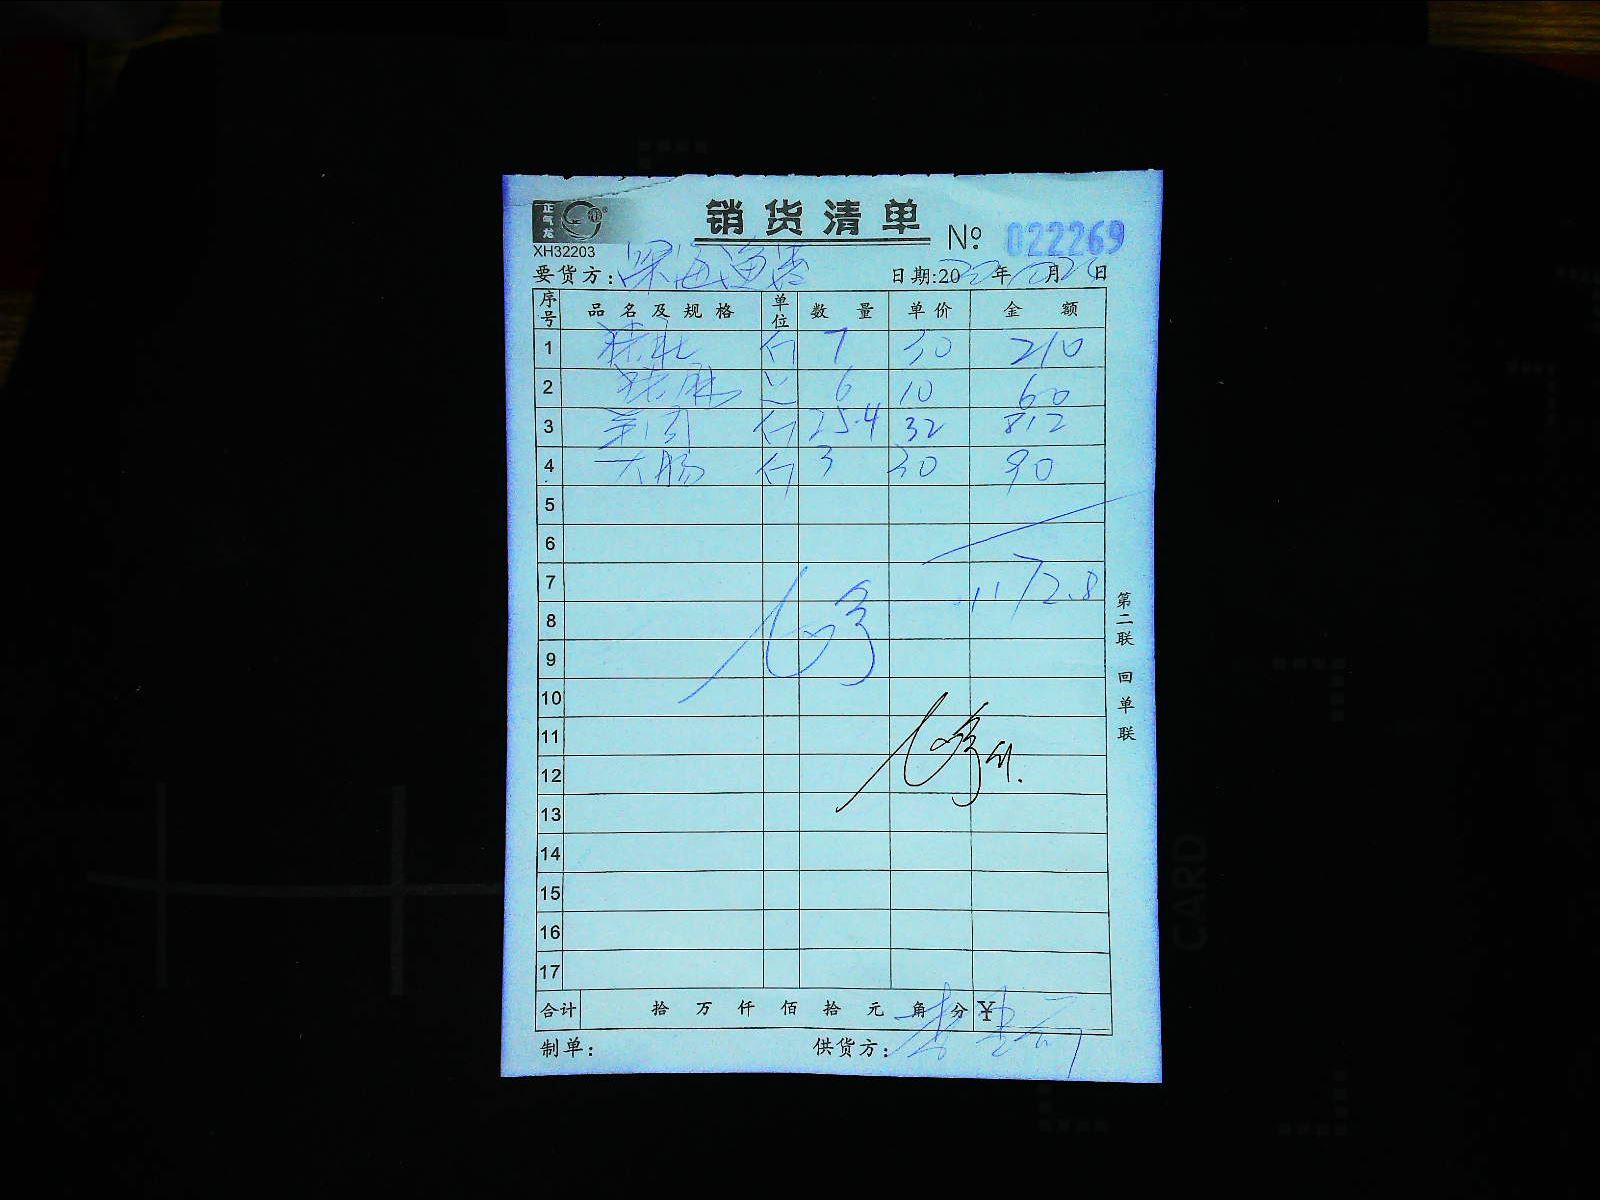 正气龙
销货清单
№ 022269
XH32203
要货方: 深海渔港 日期:20 年 月 日
序号 品名及规格 单位 数量 单价 金额
1 猪肚 斤 7 30 210
2 6 10 60
3 羊肉 斤 25.4 32 812
4 大肠 斤 3 30 90
5
6
7 1172.8
8
9
10
11
12
13
14
15
16
17
合计 拾 万 仟 佰 拾 元 角 分 ¥
制单: 供货方: 李
第二联 回单联
CARD